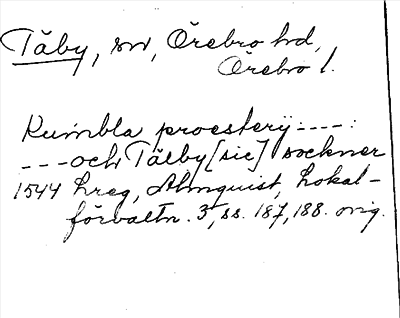 Täby, sn, Örebro hd,
Örebro l.
Kumbla proestery ----:
---och Tälby [sic] sockner
1544 hreg, Almquist, Lokal-
förvaltn. 3, ss. 187, 188. orig.